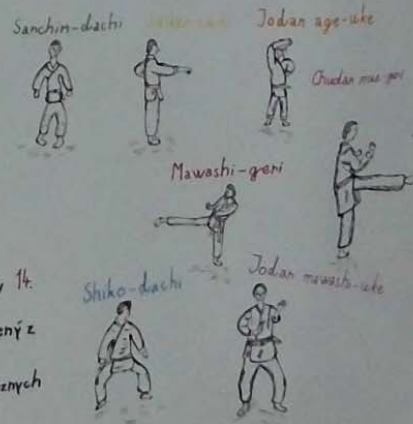 Sanchin-dachi
Jodan age-uke
Chudan mae geri
Mawashi-geri
14.
Shiko-dachi
Jodan mawashi-uke
ený z
znych